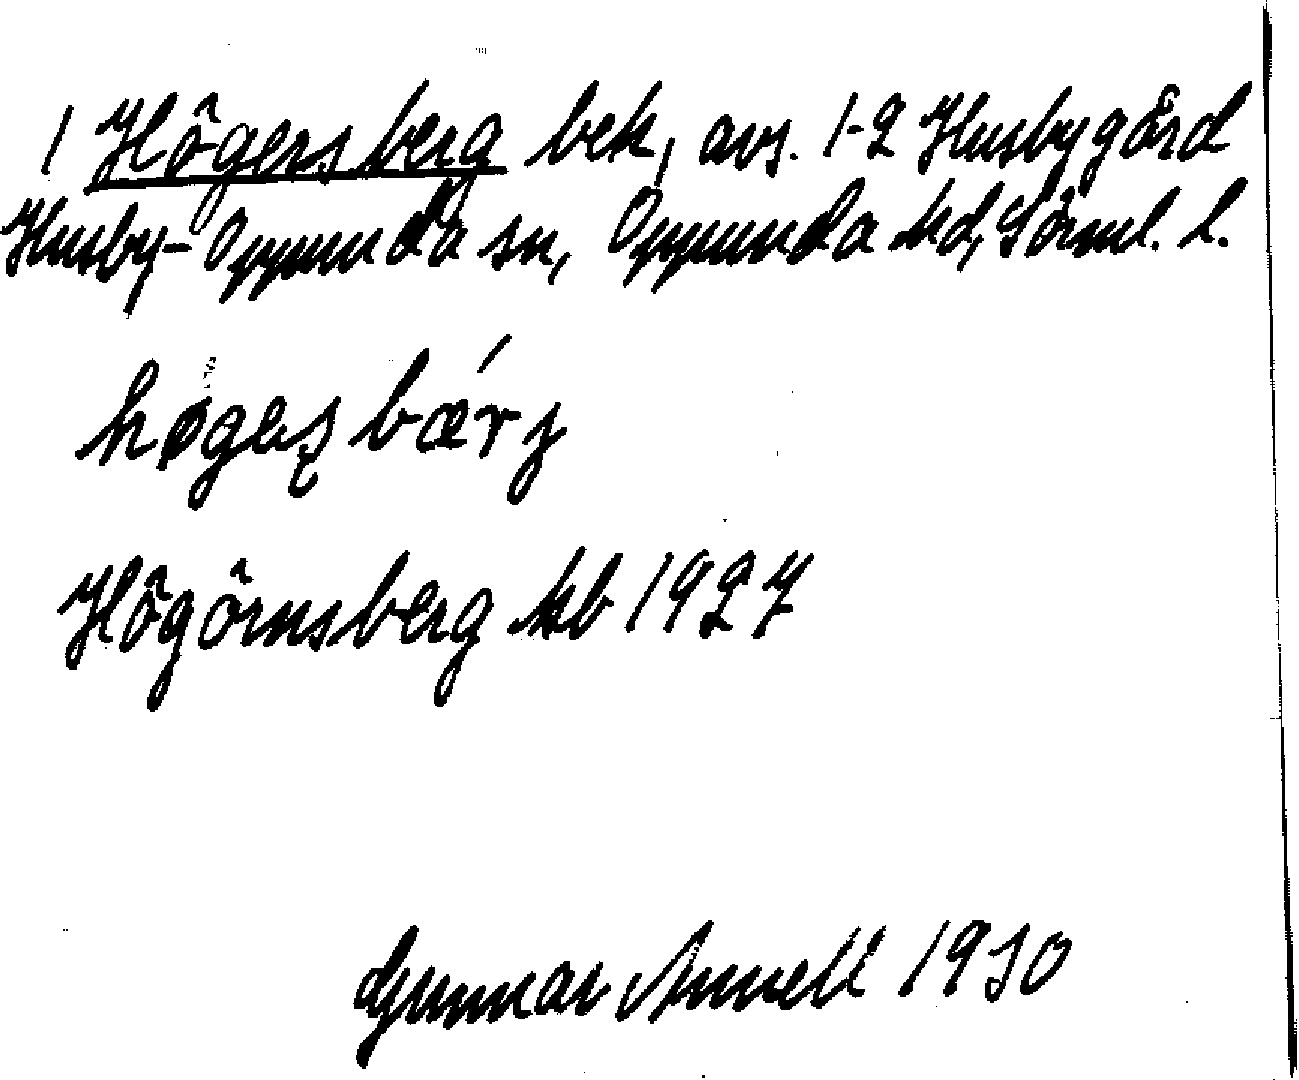 1 Högersberg bek, avs. 1-2 Husbygård
Husby-Oppunda sn, Oppunda hd, Sörml. l.
høgeʂbǽrj
Högörnsberg kb 1927
Gunnar 1930